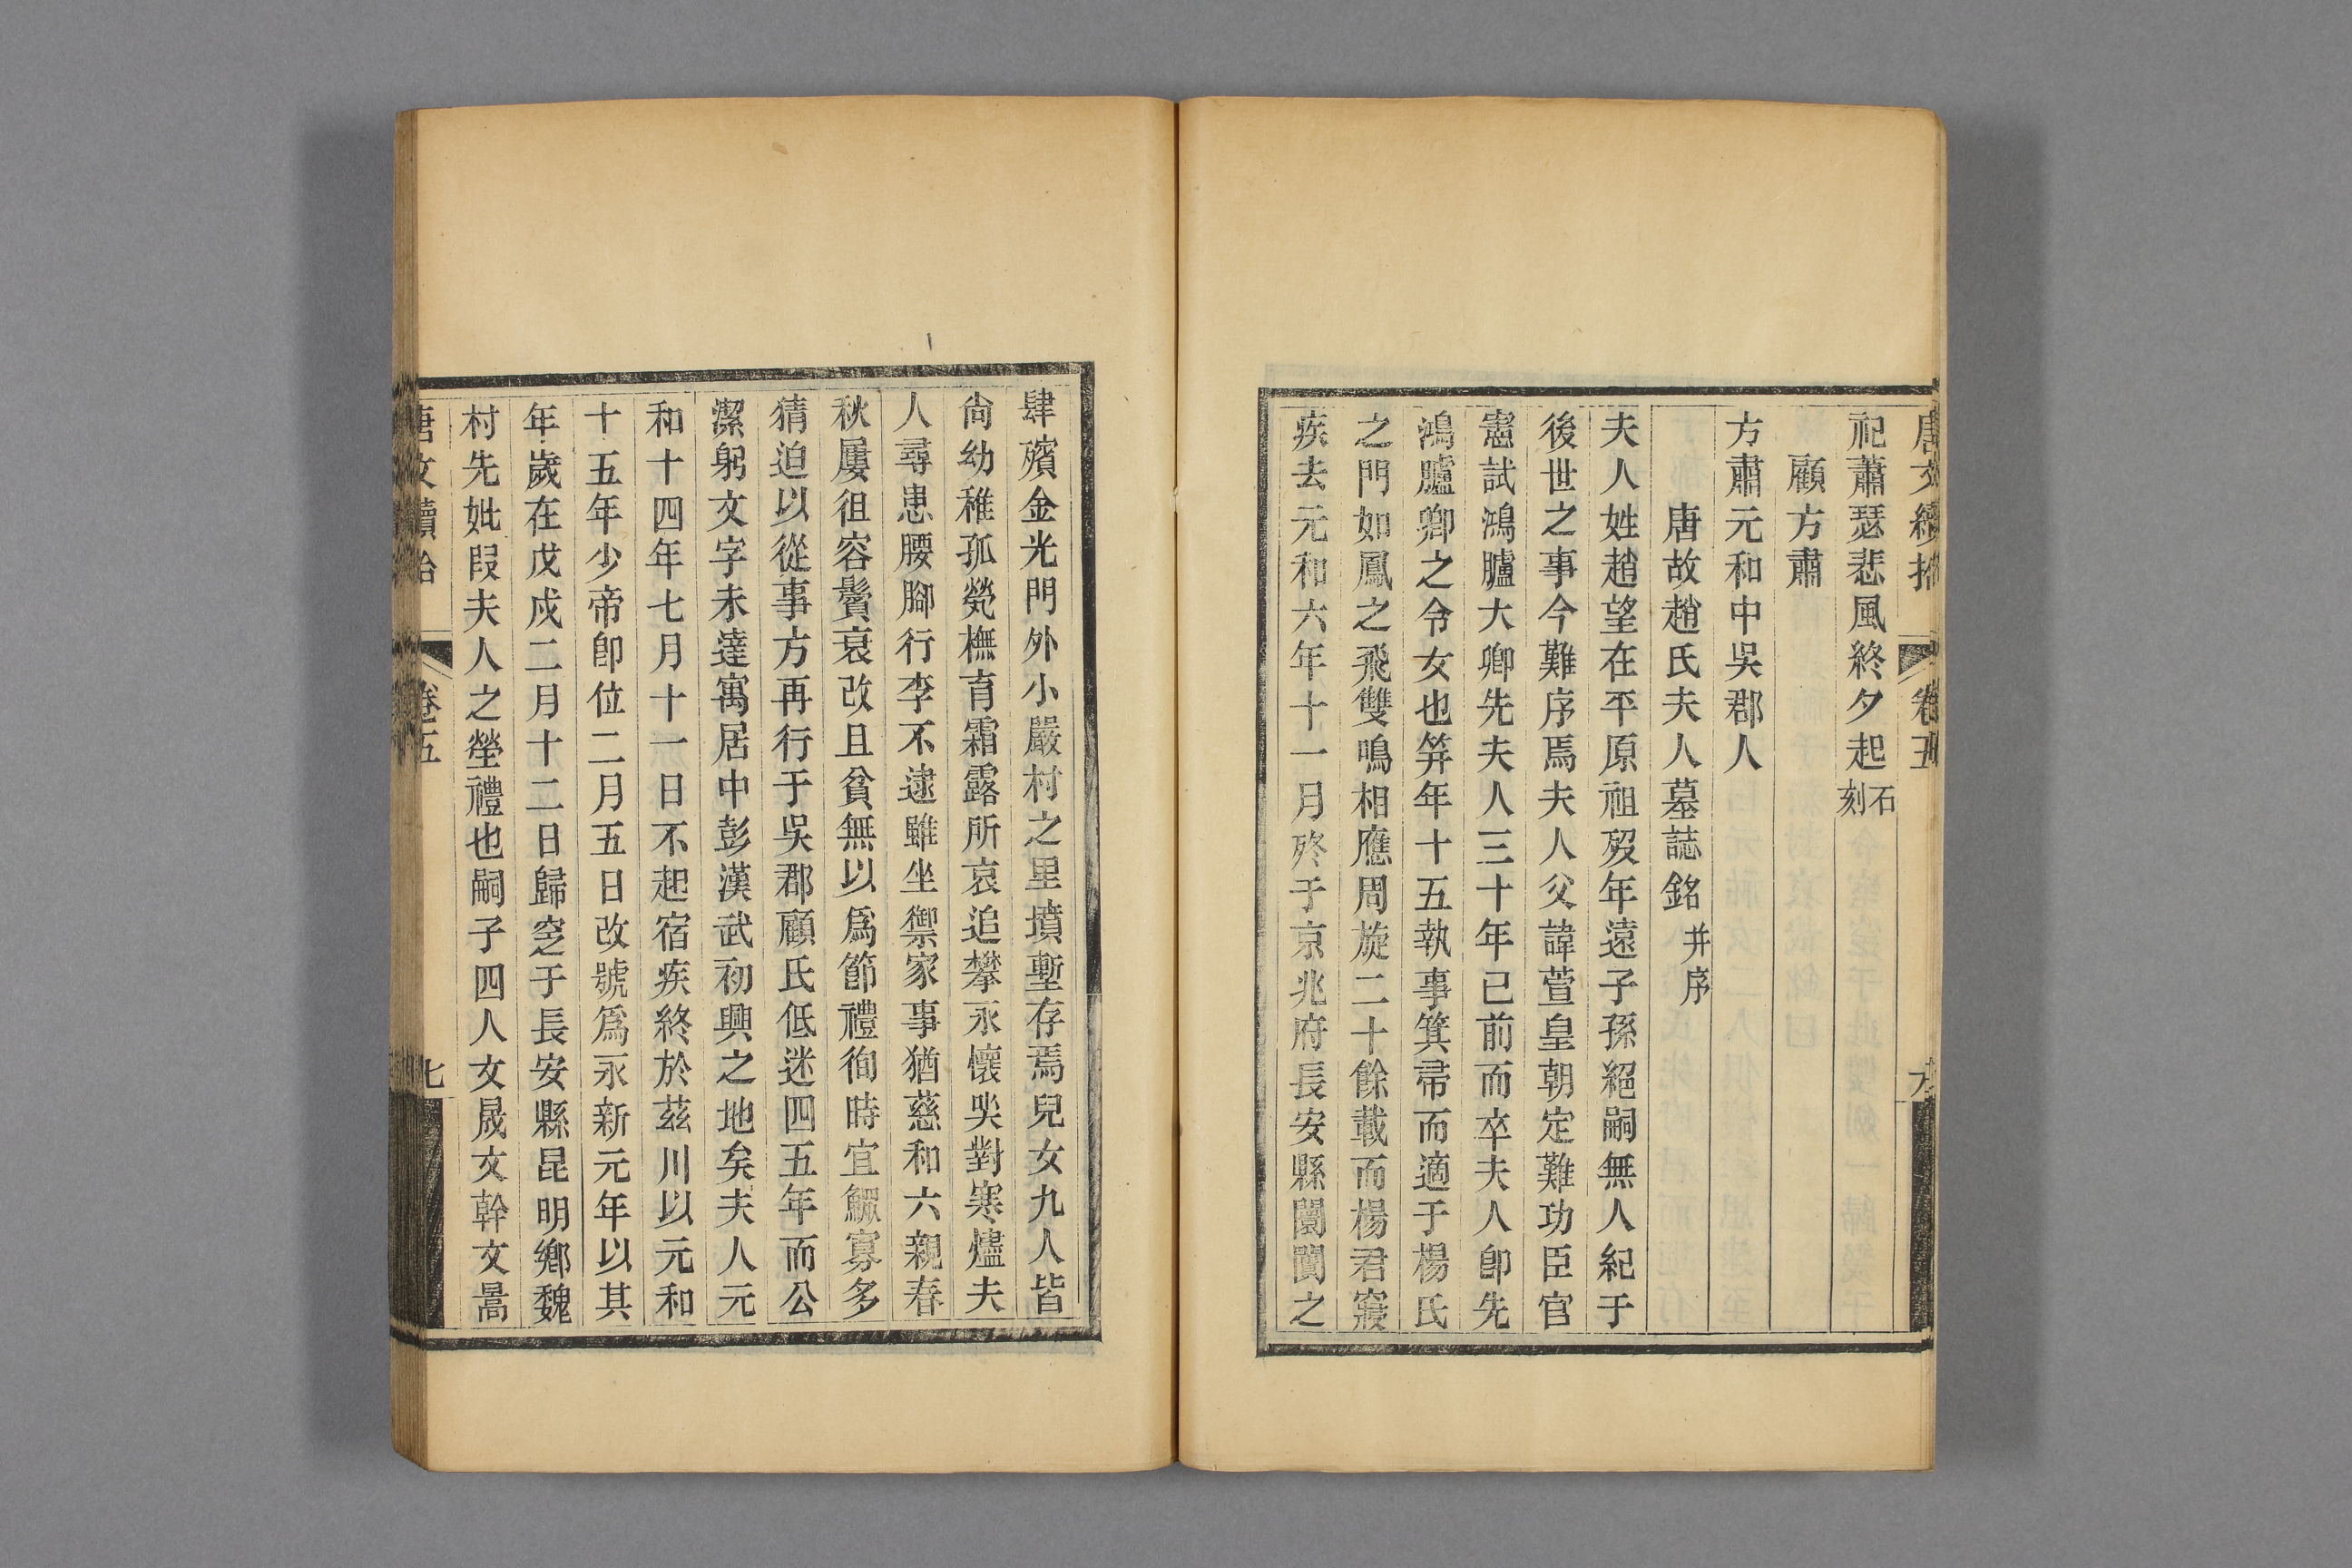 唐文續拾 卷五 六
祀蕭瑟悲風終夕起石刻
顧方肅
方肅元和中吳郡人
唐故趙氏夫人墓誌銘并序
夫人姓趙望在平原祖歿年遠子孫絕嗣無人紀于
後世之事今難序焉夫人父諱萱皇朝定難功臣官
憲試鴻臚大卿先夫人三十年已前而卒夫人卽先
鴻臚卿之令女也笄年十五執事箕帚而適于楊氏
之門如鳳之飛雙鳴相應周旋二十餘載而楊君寢
疾去元和六年十一月終于京兆府長安縣闤闠之
肆殯金光門外小嚴村之里墳塹存焉兒女九人皆
尙幼稚孤煢撫育霜露所哀追攀永懷哭對寒燼夫
人尋患腰腳行李不逮雖坐禦家事猶慈和六親春
秋屢徂容鬢衰改且貧無以爲節禮徇時宜鰥寡多
猜迫以從事方再行于吳郡顧氏低迷四五年而公
潔躬文字未達寓居中彭漢武初興之地矣夫人元
和十四年七月十一日不起宿疾終於茲川以元和
十五年少帝卽位二月五日改號爲永新元年以其
年歲在戊戌二月十二日歸窆于長安縣昆明鄉魏
村先妣段夫人之塋禮也嗣子四人女晟文幹文暠
唐文續拾 卷五 七